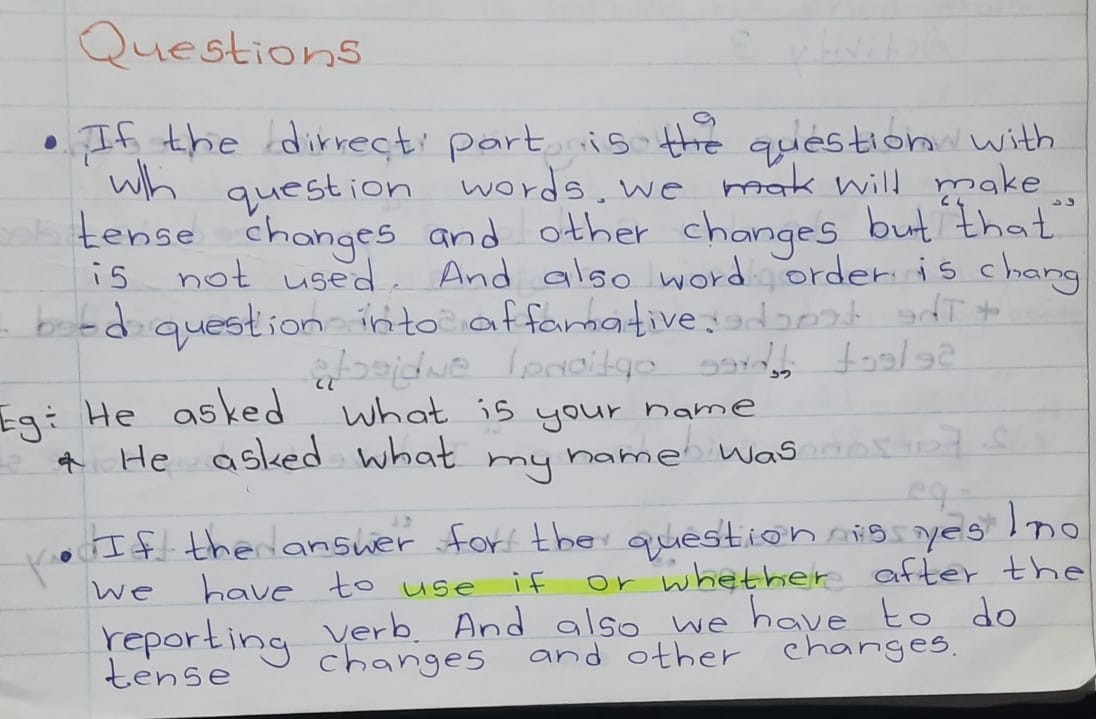 Questions
• If the dirrect part is the a question with
wh question words, we mak will make
tense changes and other changes but "that"
is not used. And also word order is chang
ed question into affamative.
Eg: He asked "what is your name"
* He asked what my name was
• If the answer for the question is yes/no
we have to use if or whether after the
reporting verb. And also we have to do
tense changes and other changes.